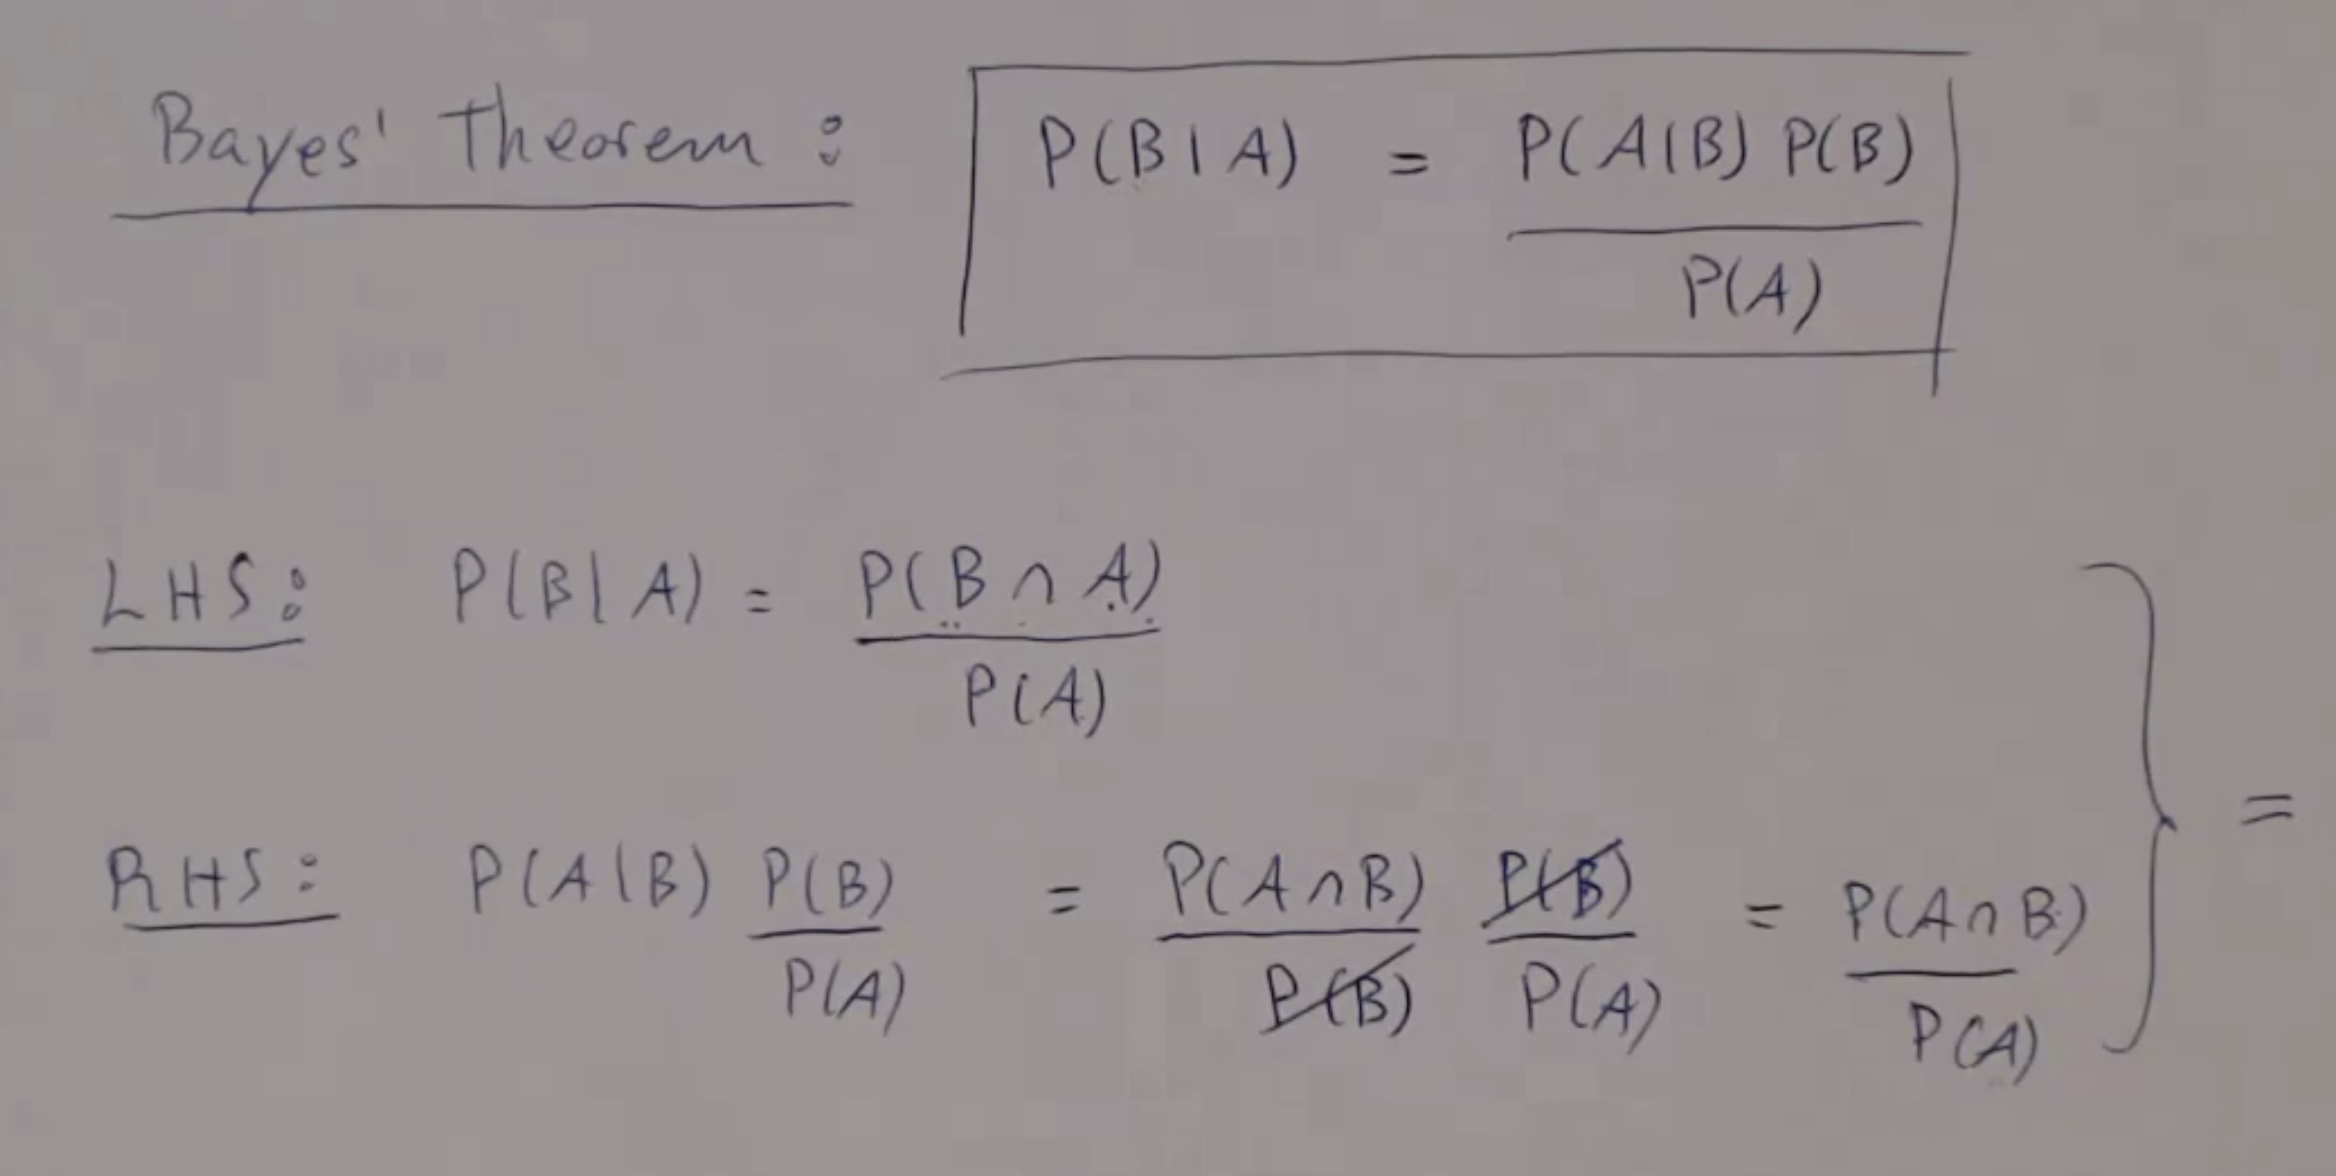 Bayes' Theorem: P(B|A) = P(A|B) P(B) / P(A)
LHS: P(B|A) = P(B ∩ A) / P(A)
RHS: P(A|B) P(B) / P(A) = P(A∩B) / P(B) P(B) / P(A) = P(A∩B) / P(A) } =